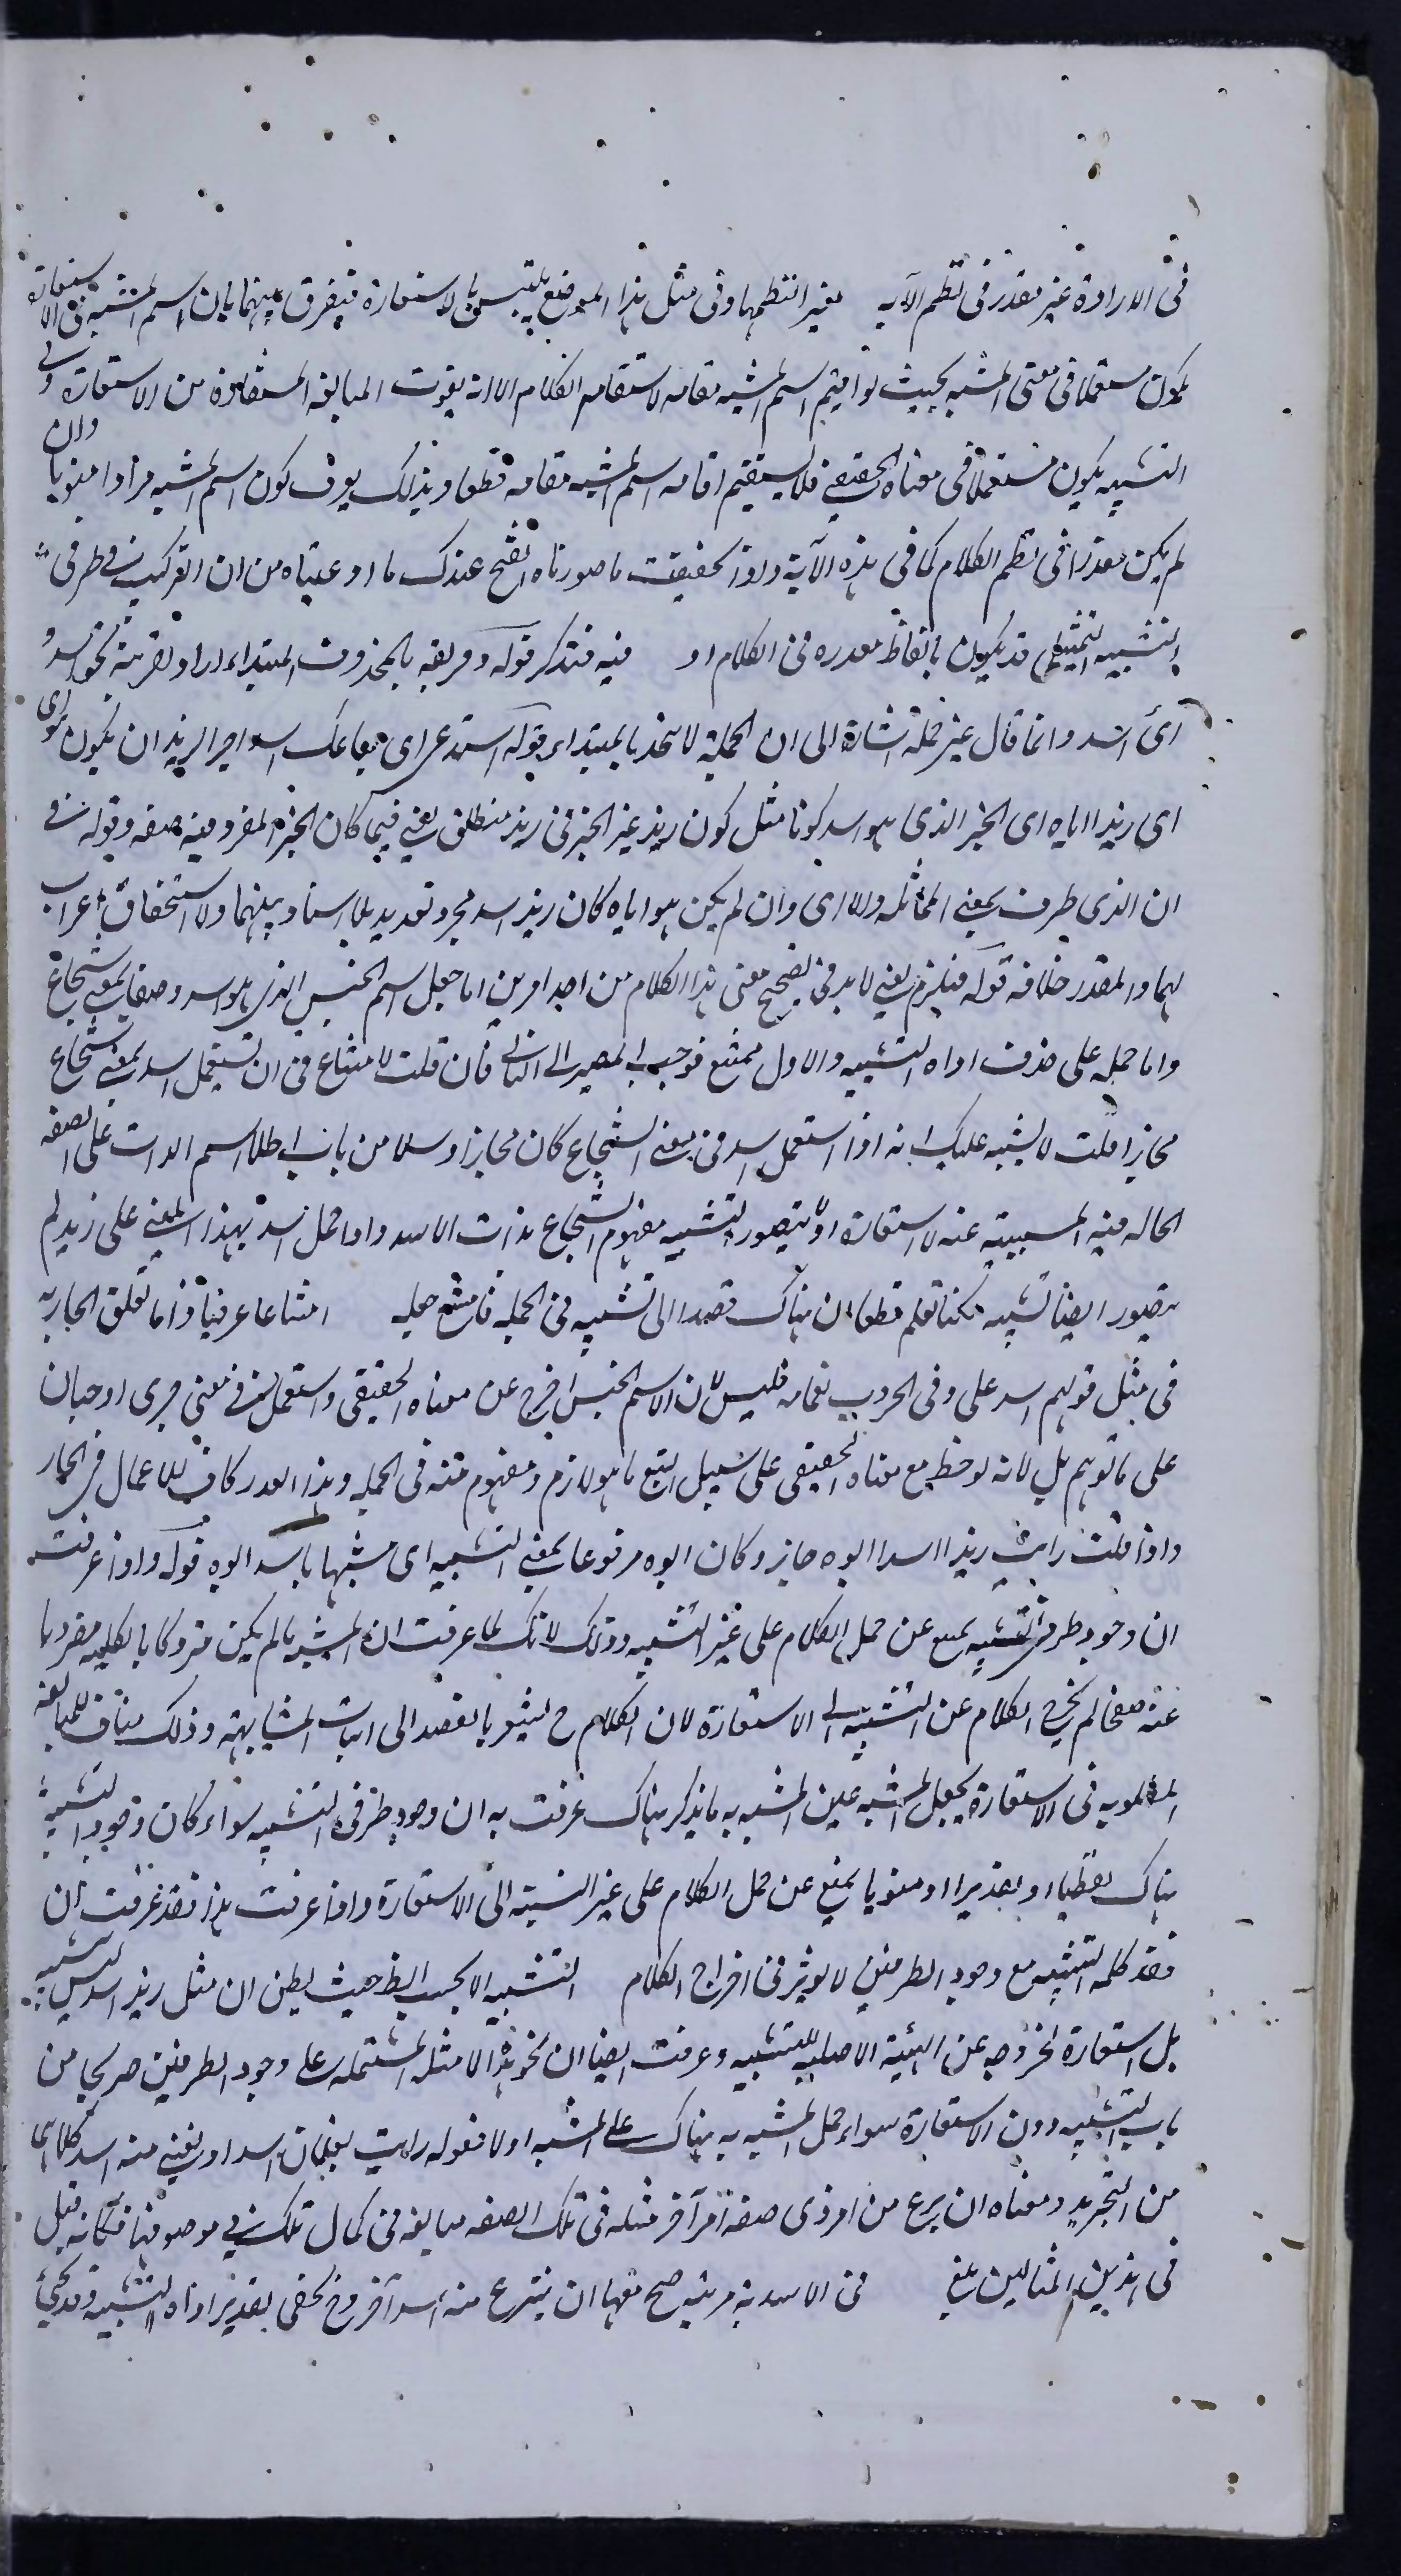 فى الارادة غير مقدر فى نظم الآيه مغير النظمها وفى مثل هذا الموضع يلتبس بالاستعارة فيفرق بينهما بان اسم المشبه به فى الاستعارة
يكون مستعملا فى معنى المشبه بحيث لو اقيم اسم المشبه مقامه لاستقام الكلام الا انه يفوت المبالغه المستفادة من الاستعارة وفى
التشبيه يكون مستعملا فى معناه الحقيقى فلا يستقيم اقامه اسم المشبه مقامه قطعا وبذلك يعرف كون اسم المشبه مرادا منويا وان
لم يكن مقدرا فى نظم الكلام كما فى هذه الآية واذا تحققت ما صورناه اتضح عندك ما ادعيناه من ان التركيب فى طرفى
التشبيه التمثيلى قد يكون بالفاظ مقدره فى الكلام او فيه فتذكر قوله وقريبه بالمحذوف المبتداء اراد لقرينة نحو اسد
اى اسد وانما قال غير جمله اشارة الى ان الجملية لا تتحد بالمبتداء قوله استدعى اى مقامك اسد اجرا لزيد ان يكون هو اى
اى زيد اياه اى الخبر الذى هو اسد كونا مثل كون زيد عين الخبر فى زيد منطلق يعنى فيما كان الخبر المفرد فيه صفه وقوله فى
ان الذى طرف بمعنى المماثله والا اى وان لم يكن هو اياه كان زيد اسد مجرد تعديد بلا اسناد بينهما ولا استحقاق اعراب
لهما والمقدر خلافه قوله فيلزم يعنى لابد فى تصحيح معنى هذا الكلام من احد امرين اما جعل اسم الجنس الذى هو اسد وصفا بمعنى شجاع
واما حمله على حذف اداه التشبيه والاول ممتنع فوجب المصير الى الثانى فان قلت لا امتناع فى ان تستعمل اسد بمعنى شجاع
مجازا قلت لا يشتبه عليك انه اذا استعمل اسد فى معنى الشجاع كان مجازا مرسلا من باب اطلاق اسم الذات على الصفه
الحاله فيه المسببية عنه لا استعارة اذ لا يتصور تشبيه مفهوم الشجاع بذات الاسد واذا حمل اسد بهذا المعنى على زيد لم
يتصور ايضا تشبيه لكنا نعلم قطعا ان هناك قصدا الى تشبيه فى الجمله فامتنع حمله امتناعا عرفيا واما تعلق الجار به
فى مثل قولهم اسد على وفى الحروب نعامه فليس لان الاسم الجنس اخرج عن معناه الحقيقى واستعمل فى معنى مجرى او جبان
على ما توهم بل لانه لوحظ مع معناه الحقيقى على سبيل التبع ما هو لازم ومفهوم منه فى الجمله وهذا القدر كاف للاعمال فى الجار
واذا قلت رايت زيدا اسدا ابوه جاز وكان ابوه مرفوعا بمعنى التشبيه اى مشبها باسد ابوه قوله واذا عرفت
ان وجود طرفى التشبيه يمنع عن حمل الكلام على غير التشبيه وذلك لانك لما عرفت ان المشبه ما لم يكن متروكا بالكليه مضروبا
عنه صفحا لم يخرج الكلام عن التشبيه الى الاستعارة لان الكلام ح يشعر بالقصد الى اثبات المشابهة وذلك مناف للمبالغه
المطلوبه فى الاستعارة بجعل المشبه عين المشبه به ما يذكر هناك عرفت به ان وجود طرفى التشبيه سواء كان وجود المشبه
هناك لفظيا او تقديرا او منويا يمنع عن حمل الكلام على غير التشبيه الى الاستعارة واذا عرفت هذا فقد عرفت ان
فقد كلمه التشبيه مع وجود الطرفين لا يوثر فى اخراج الكلام التشبيه الا بحسب الظ حيث يظن ان مثل زيد اسد ليس تشبيه
بل استعارة لخروجه عن الهيئة الاصليه للتشبيه وعرفت ايضا ان نحو هذه الامثله المشتمله على وجود الطرفين صريحا من
باب التشبيه دون الاستعارة سواء حمل المشبه به هناك على المشبه او لا فقوله رايت بفلان اسدا ولقينى منه اسد كلاهما
من التجريد ومعناه ان ينزع من امر ذى صفه امر آخر مثله فى تلك الصفه مبالغه فى كمال تلك فى موصوفها فكانه قيل
فى هذين المثالين بلغ فى الاسدية مرتبه صح معها ان ينتزع منه اسد آخر وح يخفى تقدير اداه التشبيه وقد يجئ